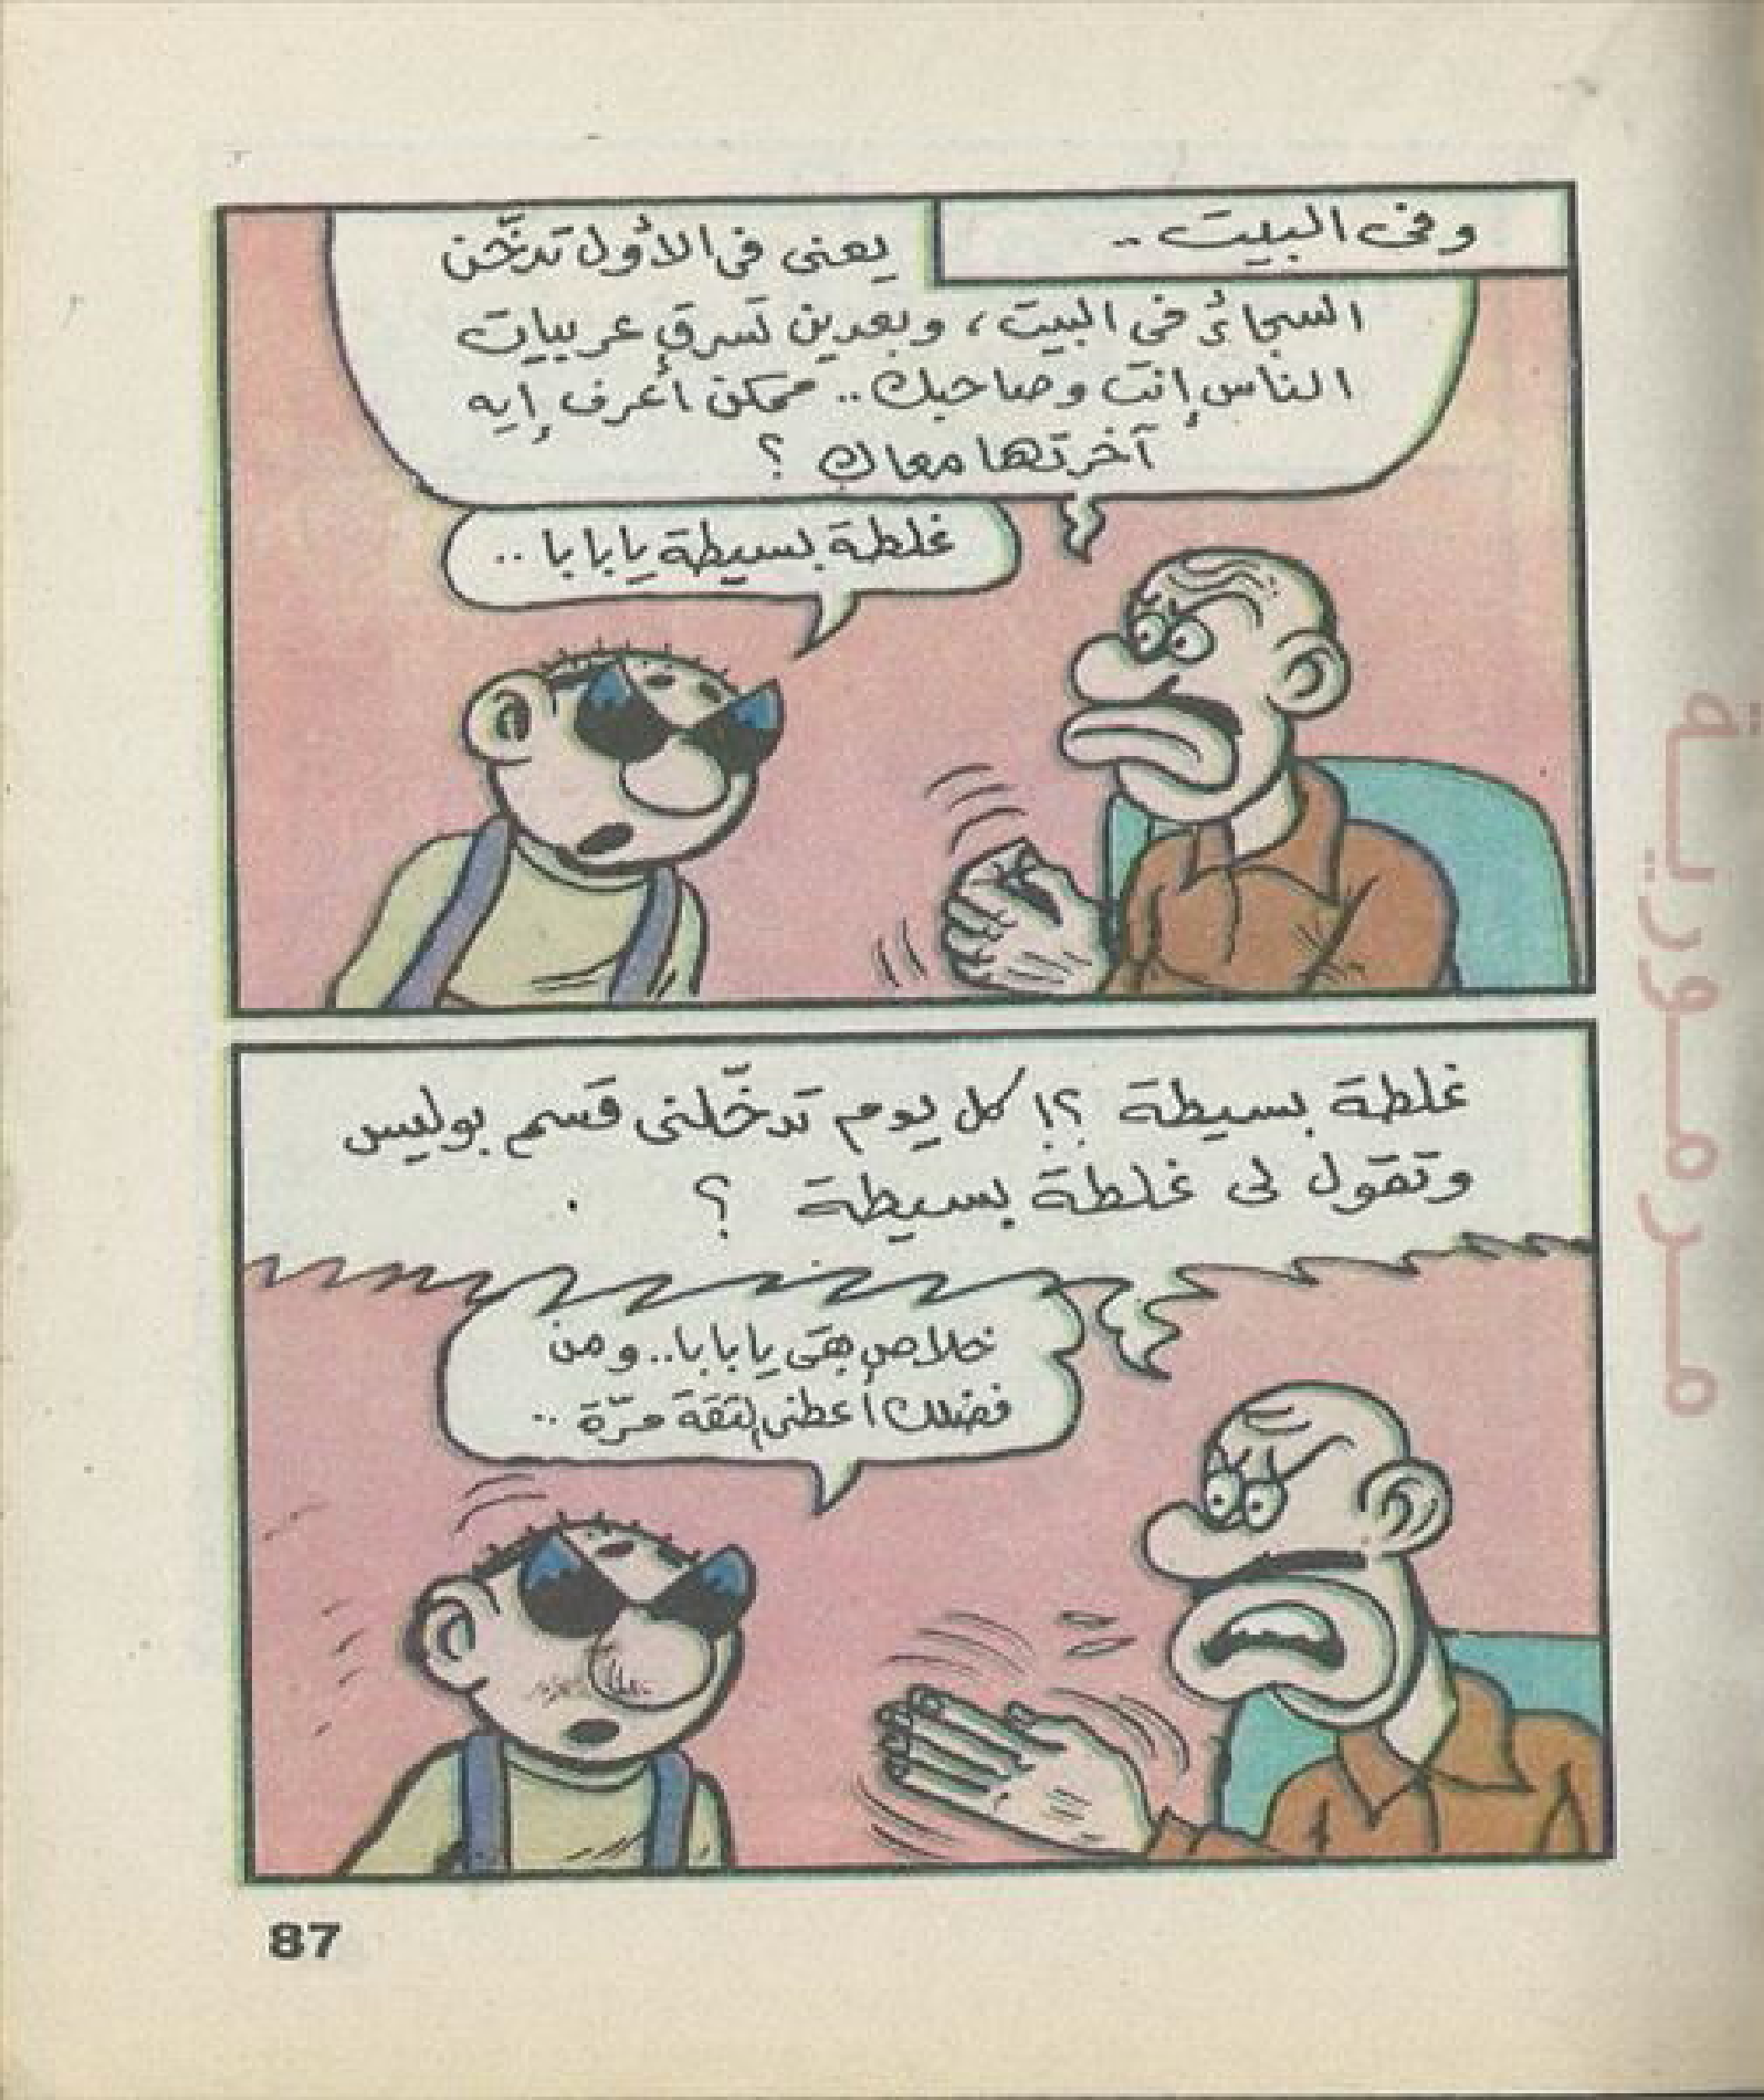 وفى البيت ..
يعنى فى الأول تدخّن
السجائر فى البيت، وبعدين تسرق عربيات
الناس إنت وصاحبك .. ممكن أعرف إيه
آخرتها معاك ؟
غلطة بسيطة يا بابا ..
غلطة بسيطة ؟! كل يوم تدخّلنى قسم بوليس
وتقول لى غلطة بسيطة ؟
خلاص بقى يا بابا.. ومن
فضلك أعطنى الثقة مرّة ..
87
مرمورية